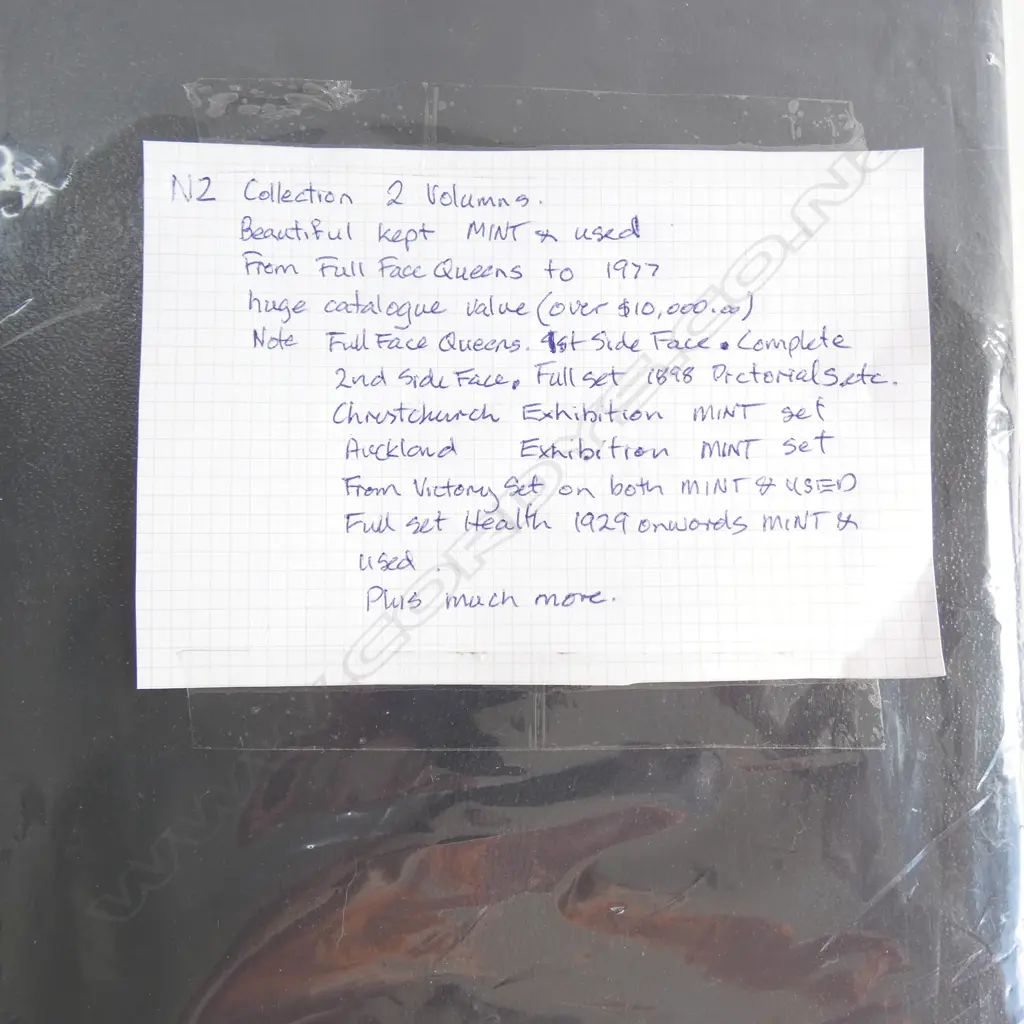 NZ Collection 2 Volumns.
Beautiful kept MINT & used
From Full Face Queens to 1977
huge catalogue value (over $10,000.00)
Note Full Face Queens. 1st Side Face. Complete
2nd Side Face. Full set 1898 Pictorials.etc.
Christchurch Exhibition MINT set
Auckland Exhibition MINT set
From Victory Set on both MINT & USED
Full set Health 1929 onwards MINT &
used.
Plus much more.